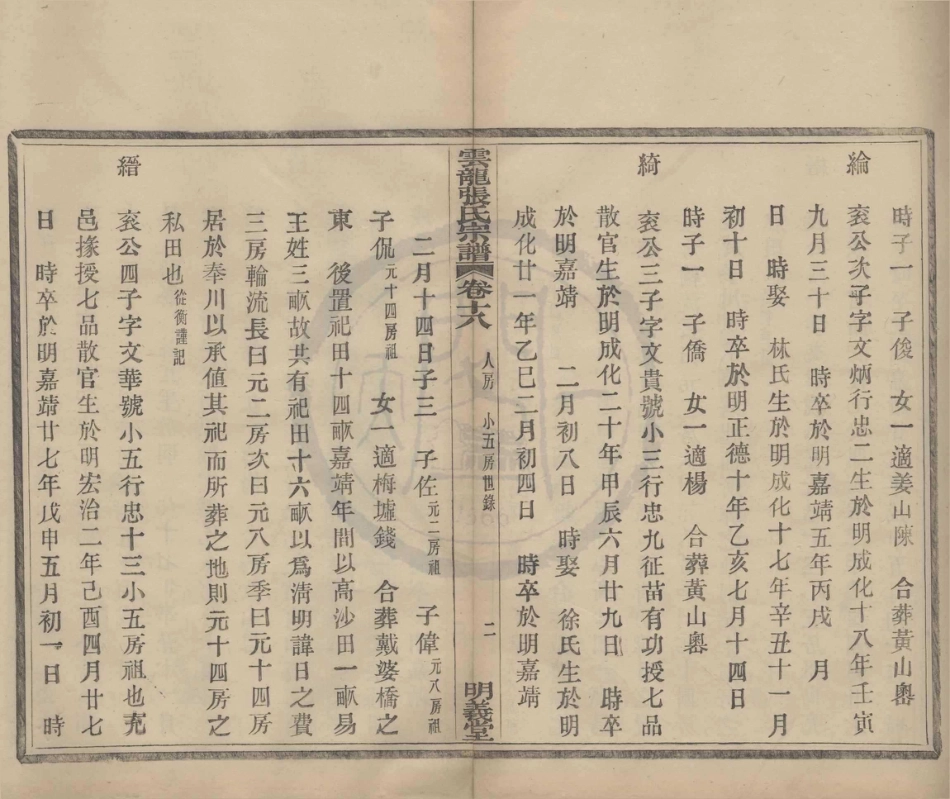 時子一　子俊　女一適姜山陳　合葬黃山嶴
綸
衮公次子字文炳行忠二生於明成化十八年壬寅
九月三十日　時卒於明嘉靖五年丙戌　月
日　時娶　林氏生於明成化十七年辛丑十一月
初十日　時卒於明正德十年乙亥七月十四日
時子一　子僑　女一適楊　合葬黃山嶴
綺
衮公三子字文貴號小三行忠九征苗有功授七品
散官生於明成化二十年甲辰六月廿九日　時卒
於明嘉靖　二月初八日　時娶　徐氏生於明
成化廿一年乙巳二月初四日　時卒於明嘉靖
雲龍張氏宗譜　卷十六　人房　小五房世錄　二　明義堂
二月十四日子三　子佐元二房祖　子偉元八房祖
子侃元十四房祖　女一適梅墟錢　合葬戴婆橋之
東　後置祀田十四畝嘉靖年間以高沙田一畝易
王姓三畝故共有祀田十六畝以爲淸明諱日之費
三房輪流長曰元二房次曰元八房季曰元十四房
居於奉川以承值其祀而所葬之地則元十四房之
私田也從衡謹記
縉
衮公四子字文華號小五行忠十三小五房祖也充
邑掾授七品散官生於明宏治二年己酉四月廿七
日　時卒於明嘉靖廿七年戊申五月初一日　時